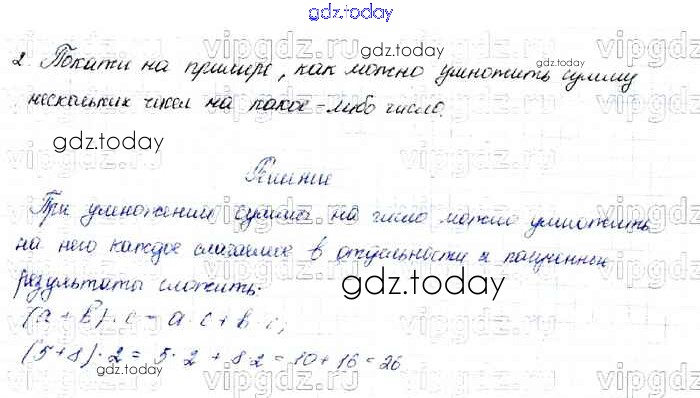 gdz.today
2 Покажи на примере, как можно умножить сумму
gdz.today
нескольких чисел на какое-либо число.
gdz.today
Решение
gdz.today
При умножении суммы на число можно умножить
на него каждое слагаемое в отдельности и полученные
результаты сложить.
gdz.today
(a + b) · c = a · c + b · c,
(5+8) · 2 = 5 · 2 + 8 · 2 = 10 + 16 = 26
gdz.today
vipgdz.ru